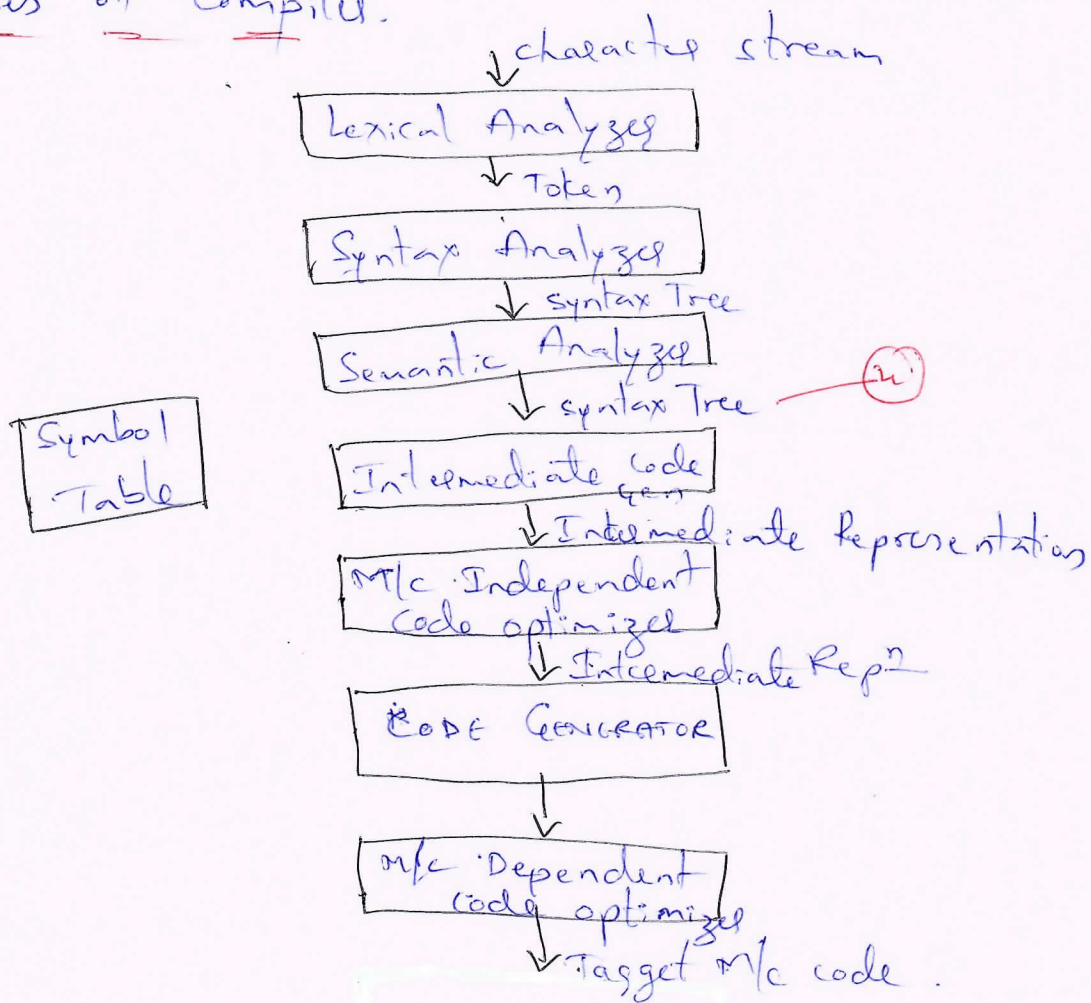 on Compiler.
character stream
Lexical Analyzer
Token
Syntax Analyzer
syntax Tree
Semantic Analyzer
syntax Tree
Symbol
Table
Intermediate Code
Gen
Intermediate Representation
M/c Independent
Code optimizer
Intermediate Repn
CODE GENERATOR
M/c Dependent
code optimizer
Tagget M/c code.